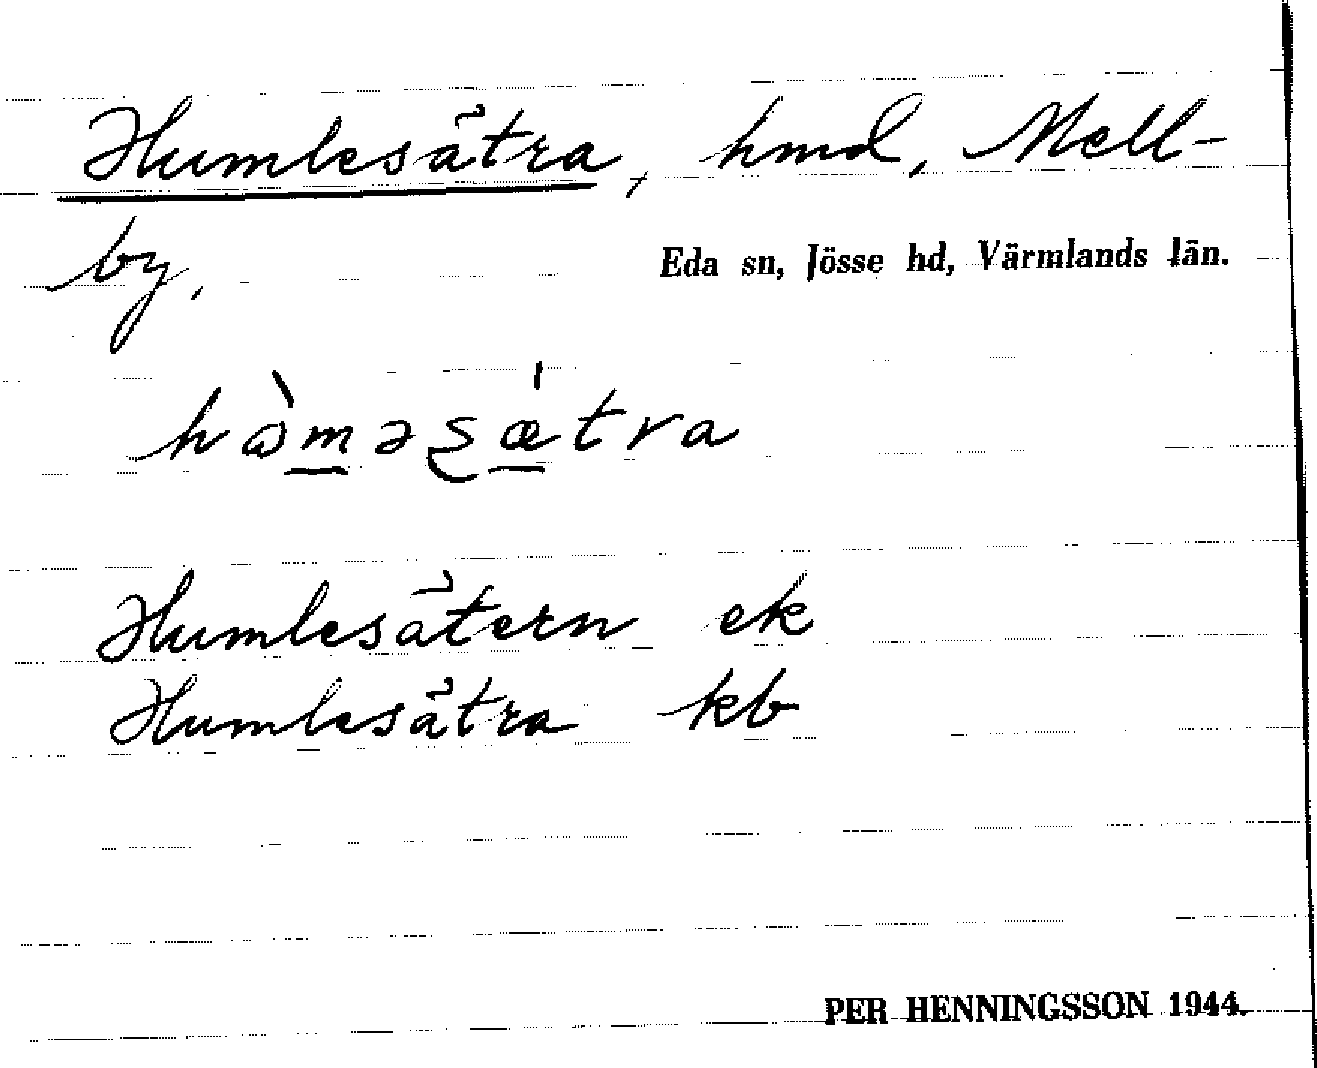 Humlesätra, hmd, Mell-
by.
Eda sn, Jösse hd, Värmlands län.
Humlesätern ek
Humlesätra kb
PER HENNINGSSON 1944.